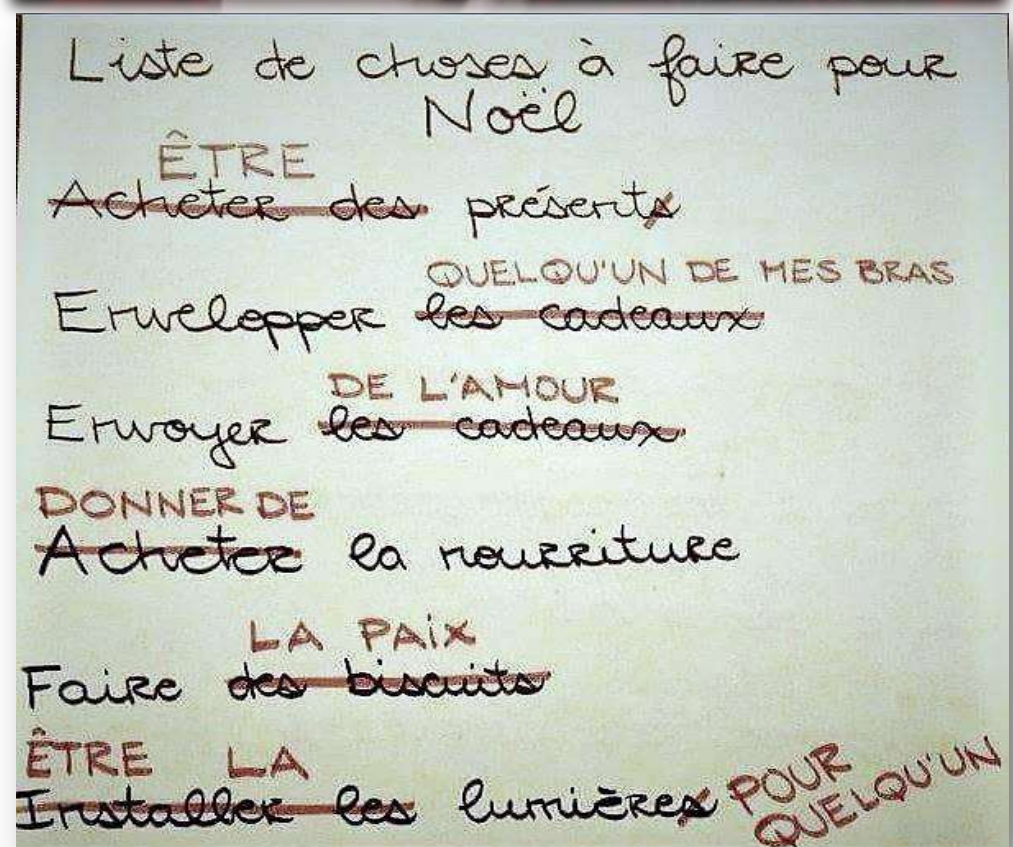 Liste de choses à faire pour
Noël
ÊTRE
Acheter des présents
QUELQU'UN DE MES BRAS
Envelopper les cadeaux
DE L'AMOUR
Envoyer les cadeaux
DONNER DE
Acheter la nourriture
LA PAIX
Faire des biscuits
ÊTRE LA
Installer les lumières POUR
QUELQU'UN